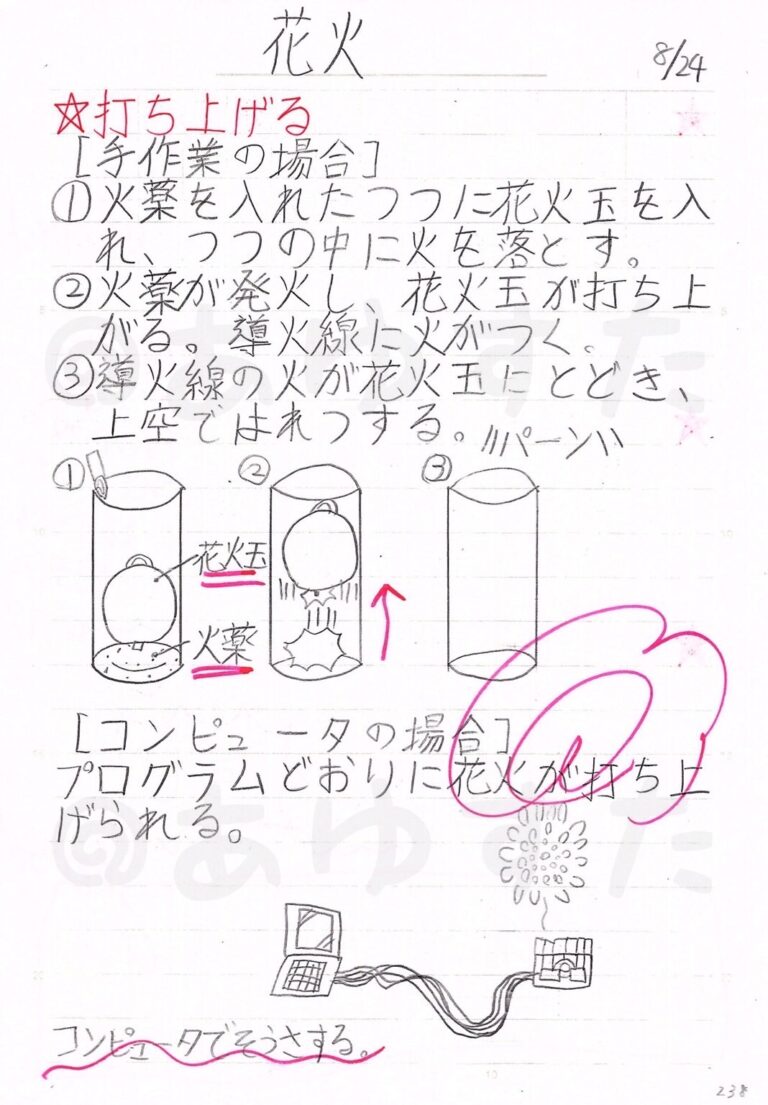 花火
8/24
☆打ち上げる
[手作業の場合]
①火薬を入れたつつに花火玉を入
れ、つつの中に火を落とす。
②火薬が発火し、花火玉が打ち上
がる。導火線に火がつく。
③導火線の火が花火玉にとどき、
上空ではれつする。パーン
① ② ③
花火玉
火薬
[コンピュータの場合]
プログラムどおりに花火が打ち上
げられる。
コンピュータでそうさする。
@あゆすた
@あゆすた
238